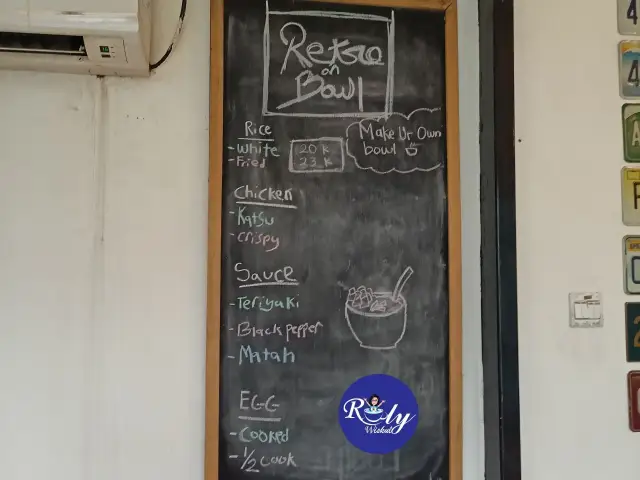 Retro
on
Bowl
Rice
- White 20 k
- Fried 23 k
Make Ur Own
bowl
Chicken
- Katsu
- crispy
Sauce
- Teriyaki
- Black pepper
- Matah
EGG
- Cooked
- 1/2 Cook
Roly
Wiskul
4
4